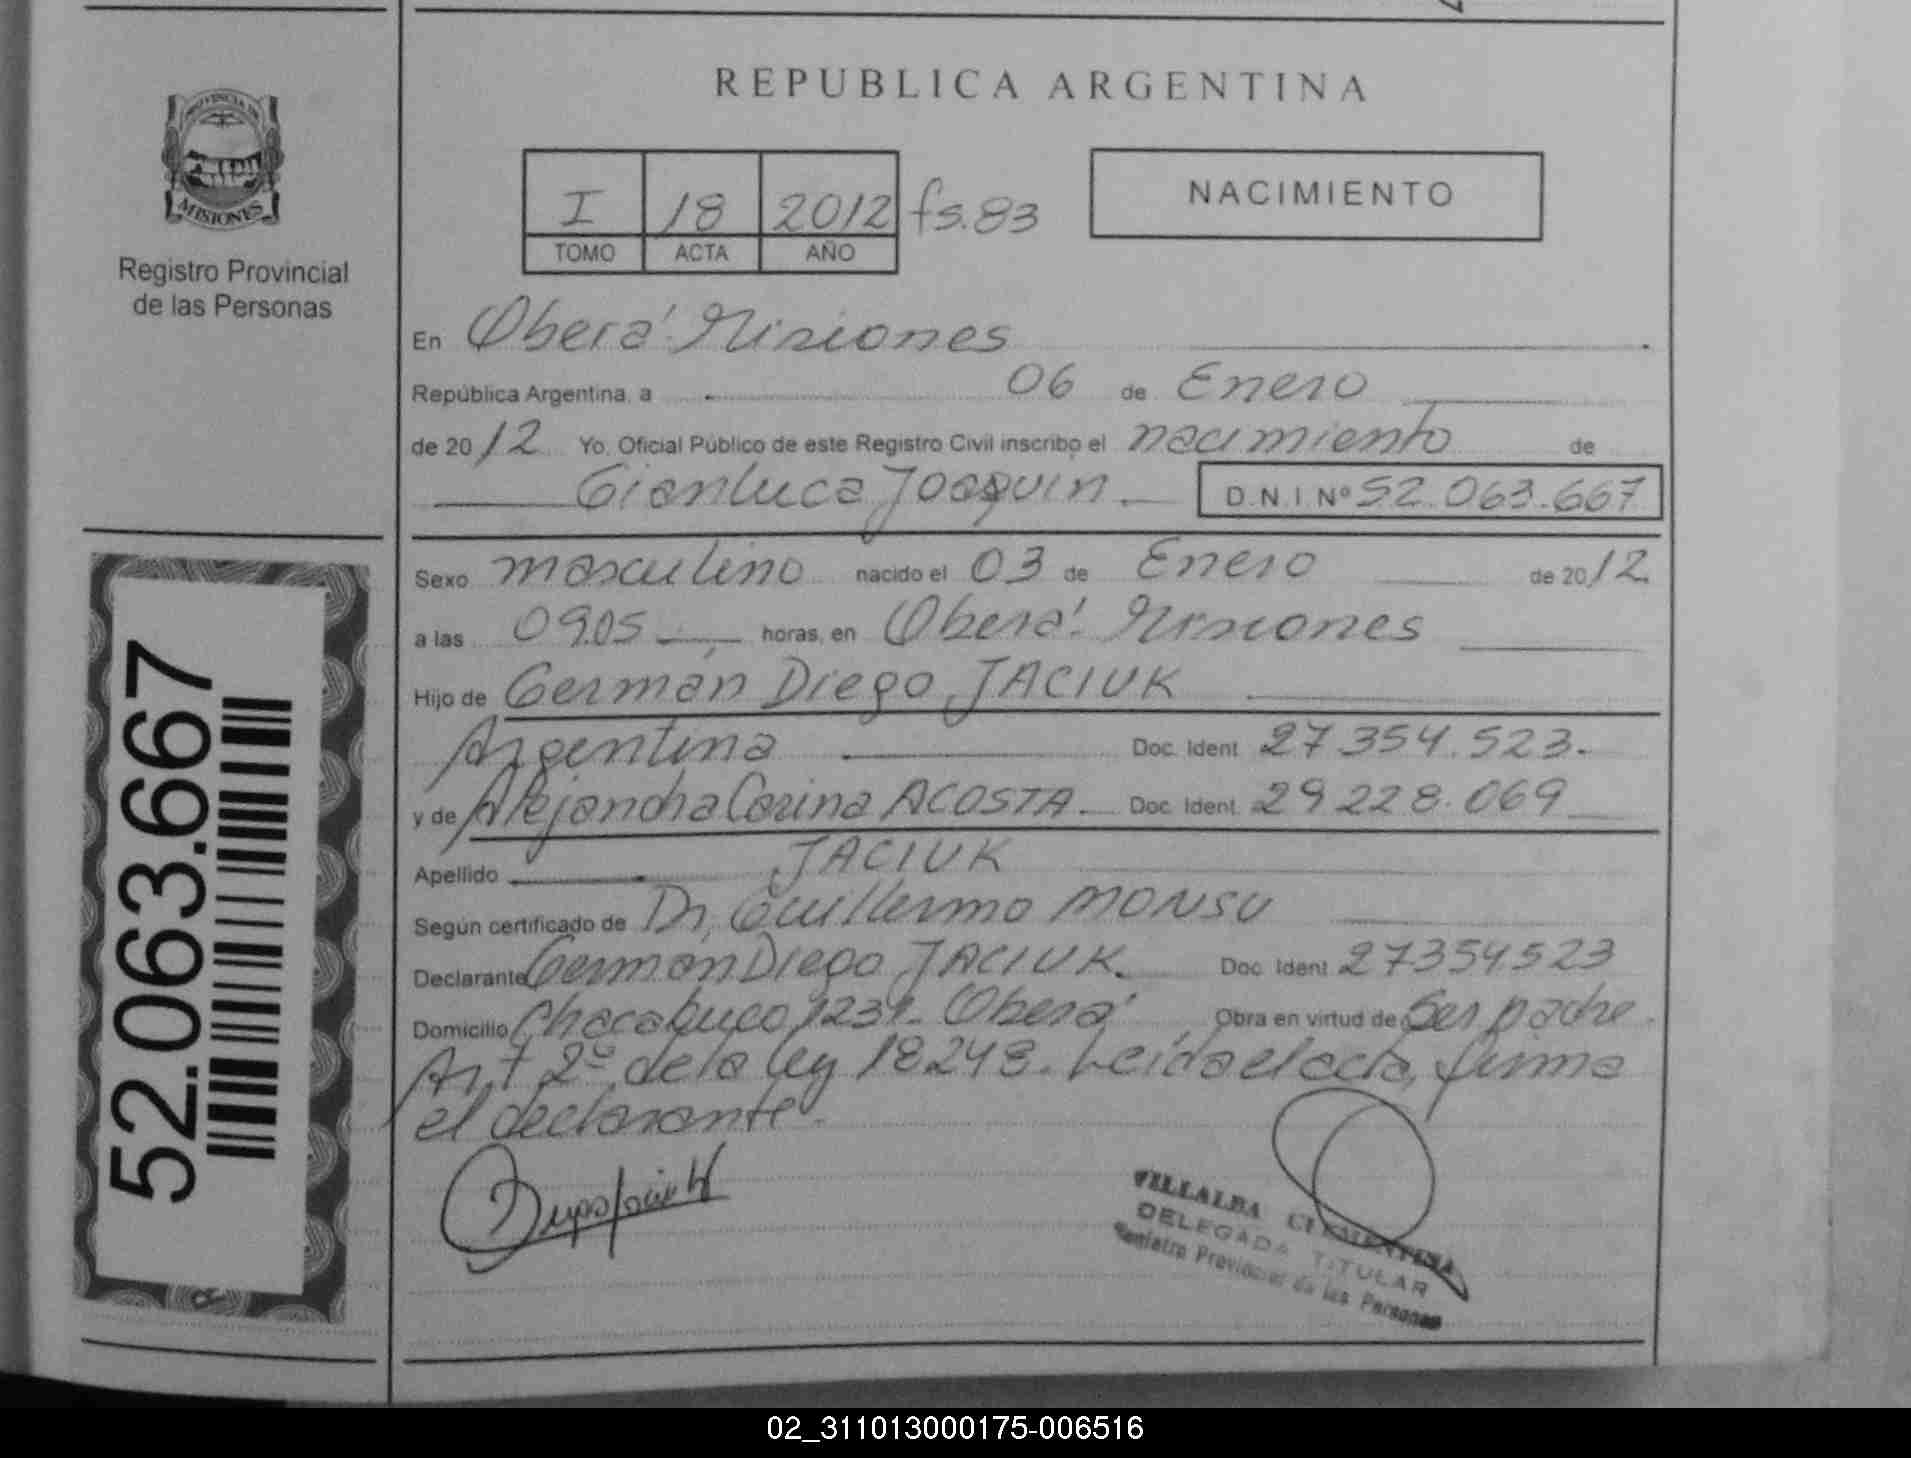 REPUBLICA ARGENTINA
PROVINCIA DE
MISIONES
Registro Provincial
de las Personas
I 18 2012 fs.83
TOMO ACTA AÑO
NACIMIENTO
En Oberá Misiones
República Argentina, a 06 de Enero
de 2012 Yo, Oficial Público de este Registro Civil inscribo el nacimiento de
Gianluca Joaquin D.N.I. Nº 52.063.667
Sexo masculino nacido el 03 de Enero de 2012
a las 09.05 horas, en Oberá Misiones
Hijo de Germán Diego JACIUK
Argentina Doc. Ident. 27.354.523.
y de Alejandra Carina ACOSTA Doc. Ident. 29.228.069
Apellido JACIUK
Según certificado de Dr. Guillermo MONSU
Declarante German Diego JACIUK. Doc. Ident. 27354523
Domicilio Chacabuco 1231 - Oberá Obra en virtud de Ser padre.
Art 2º de la ley 18248. Leída el acta, firma
el declarante.
52.063.667
VILLALBA CLEMENTINA
DELEGADA TITULAR
Registro Provincial de las Personas
02_311013000175-006516